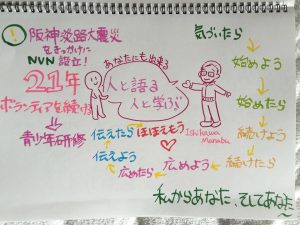 ①
阪神淡路大震災
をきっかけに
NVN 設立!
21年
ボランティアを続ける
⇓
青少年研修
あなたにも出来る
人と語る
人と学ぶ
Ishikawa
Manabu
気づいたら
↓
始めよう
↓
始めたら
↓
続けよう
↓
続けたら
広めよう
広めたら
伝えよう
伝えたら
ほほえもう
私からあなた、そしてあなた〜